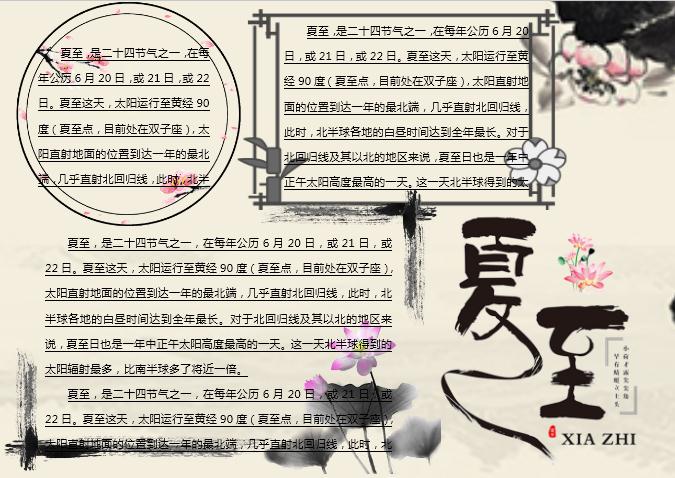 夏至，是二十四节气之一，在每
年公历 6 月 20 日，或 21 日，或 22
日。夏至这天，太阳运行至黄经 90
度（夏至点，目前处在双子座），太
阳直射地面的位置到达一年的最北
端，几乎直射北回归线，此时，北半
夏至，是二十四节气之一，在每年公历 6 月 20
日，或 21 日，或 22 日。夏至这天，太阳运行至黄
经 90 度（夏至点，目前处在双子座），太阳直射地
面的位置到达一年的最北端，几乎直射北回归线，
此时，北半球各地的白昼时间达到全年最长。对于
北回归线及其以北的地区来说，夏至日也是一年中
正午太阳高度最高的一天。这一天北半球得到的太
夏至，是二十四节气之一，在每年公历 6 月 20 日，或 21 日，或
22 日。夏至这天，太阳运行至黄经 90 度（夏至点，目前处在双子座），
太阳直射地面的位置到达一年的最北端，几乎直射北回归线，此时，北
半球各地的白昼时间达到全年最长。对于北回归线及其以北的地区来
说，夏至日也是一年中正午太阳高度最高的一天。这一天北半球得到的
太阳辐射最多，比南半球多了将近一倍。
夏至，是二十四节气之一，在每年公历 6 月 20 日，或 21 日，或
22 日。夏至这天，太阳运行至黄经 90 度（夏至点，目前处在双子座），
太阳直射地面的位置到达一年的最北端，几乎直射北回归线，此时，北
夏至
小荷才露尖尖角
早有蜻蜓立上头
XIA ZHI